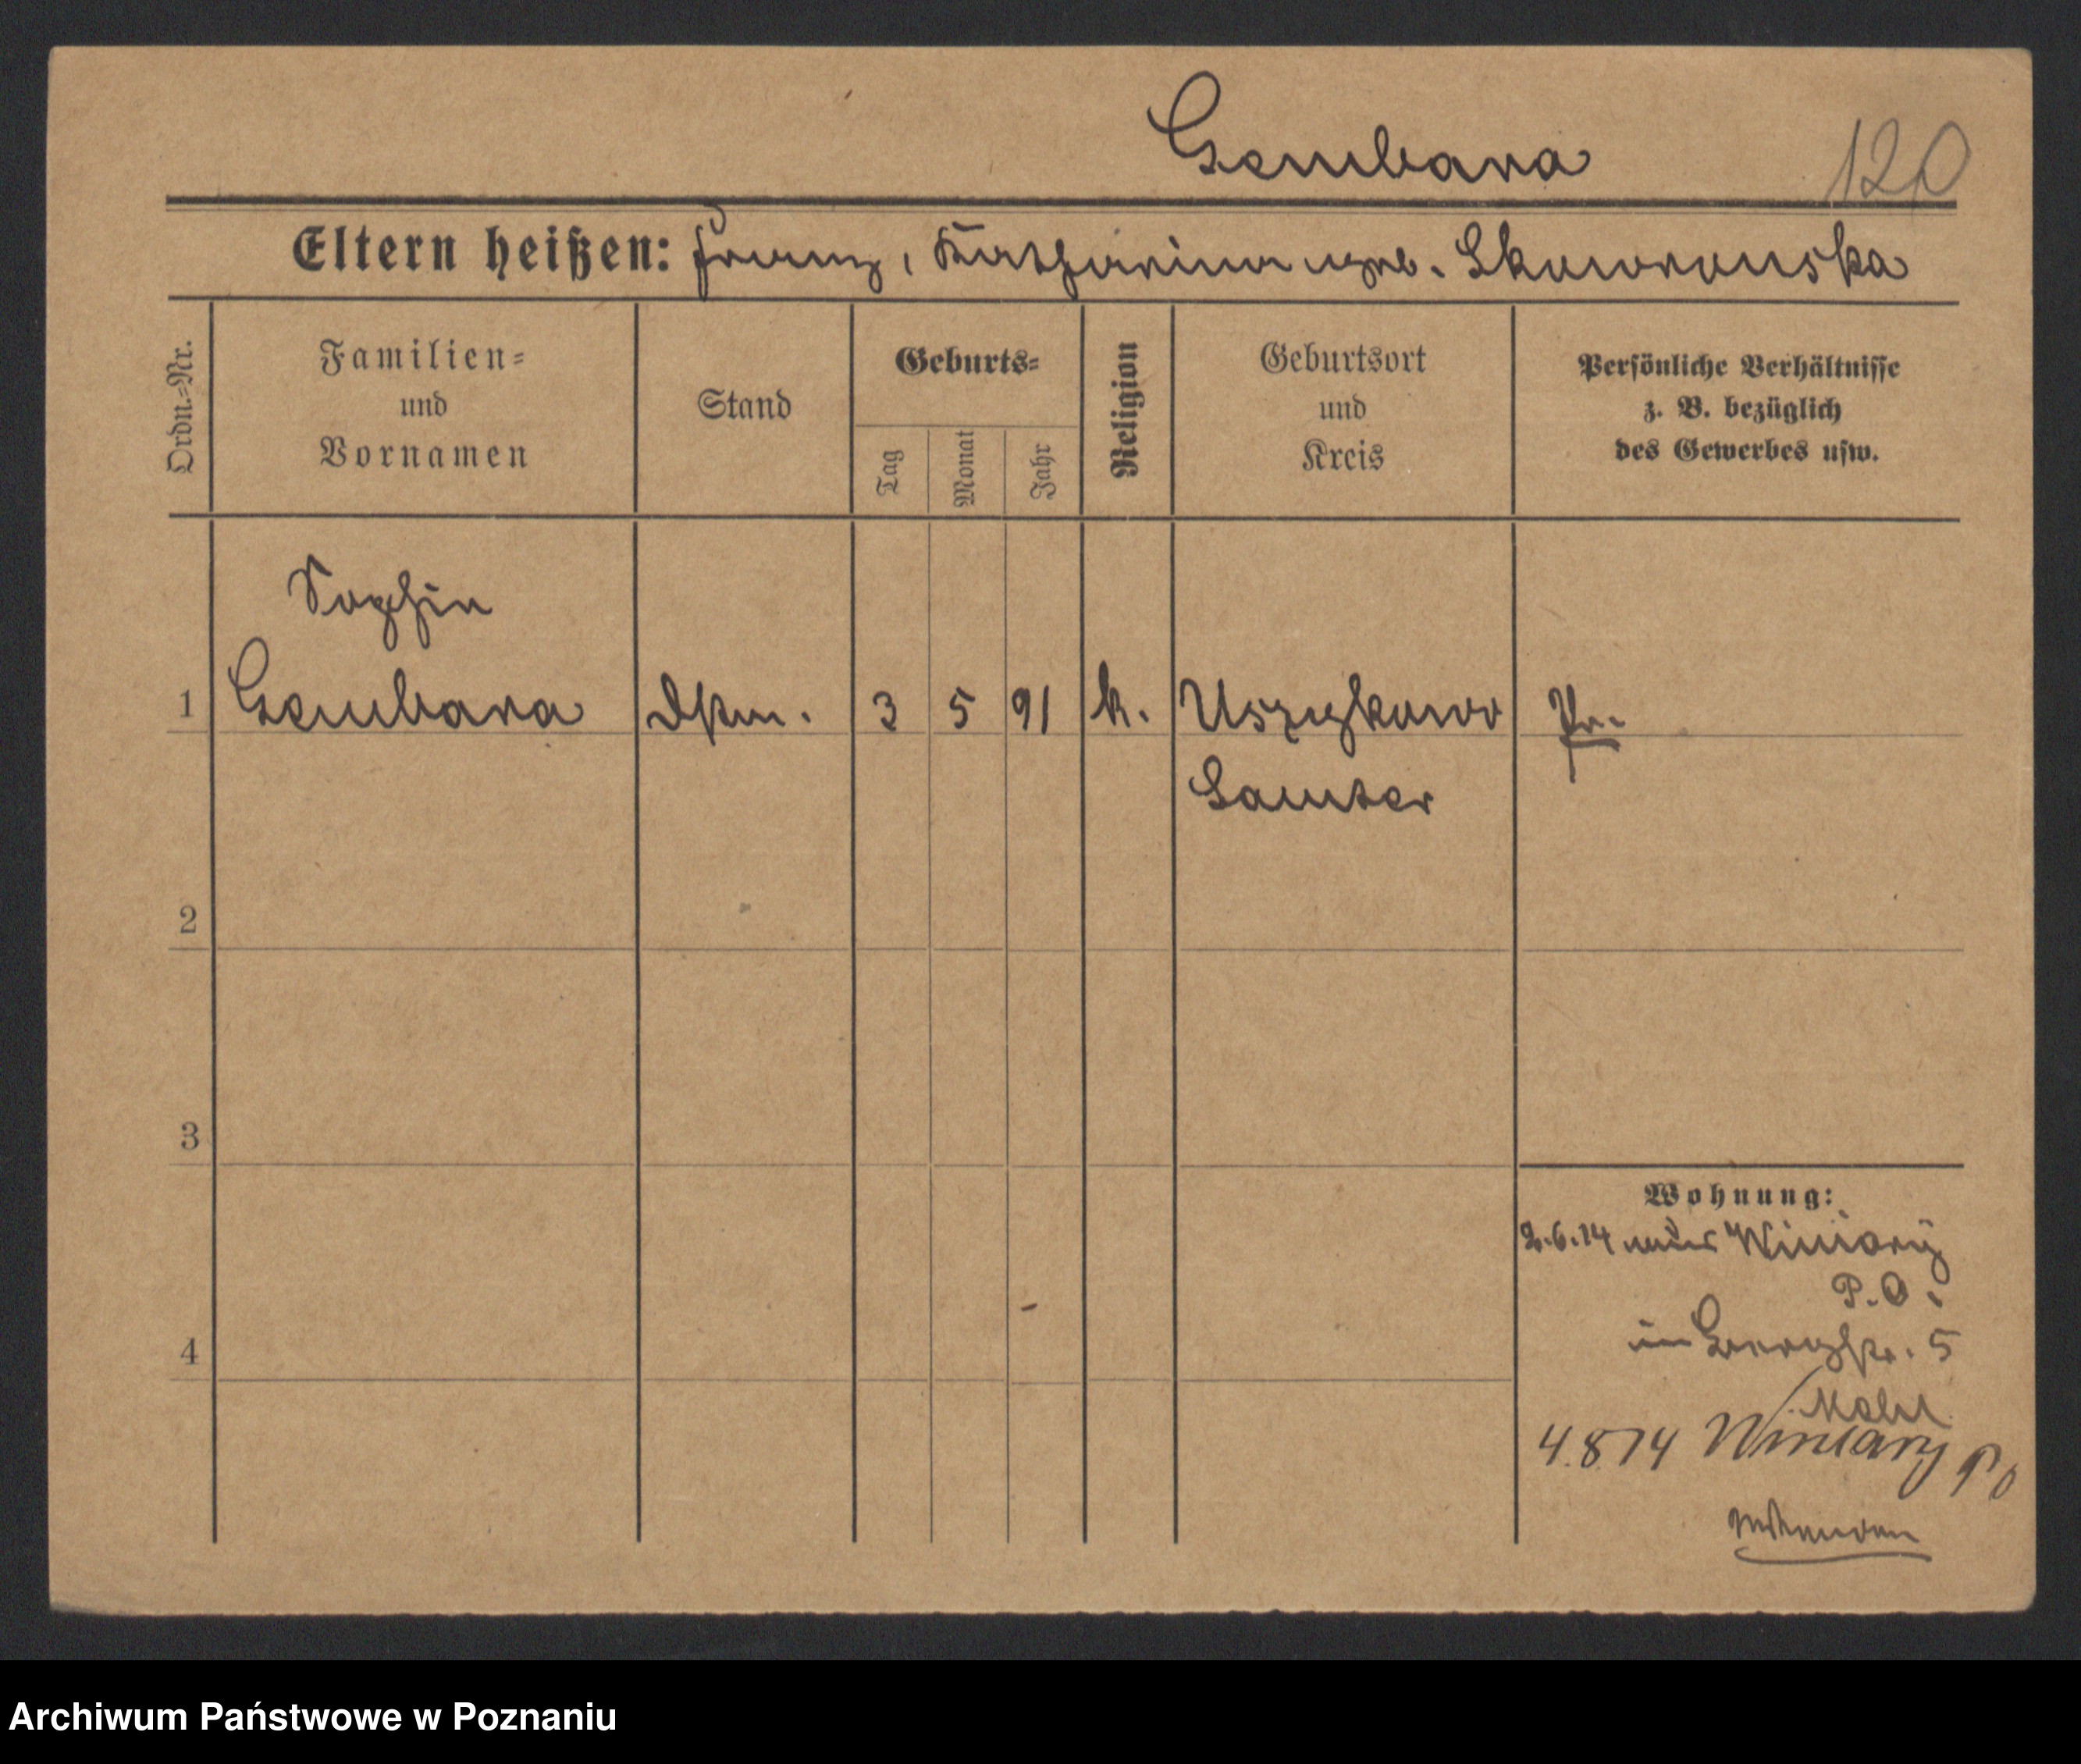 Gembara 120
Eltern heißen: Franz, Katharina geb. Skowronska
Ordn.=Nr.
Familien=
und
Vornamen
Stand
Geburts=
Tag
Monat
Jahr
Religion
Geburtsort
und
Kreis
Persönliche Verhältnisse
z. B. bezüglich
des Gewerbes usw.
Sophia
1 Gembara Dstm. 3 5 91 k. Uszczykowo Pr.
Samter
2
3
4
Wohnung:
2.6.14 Winiary
P.O.
in Bergstr. 5
4.8.14 Winiary PO
Archiwum Państwowe w Poznaniu